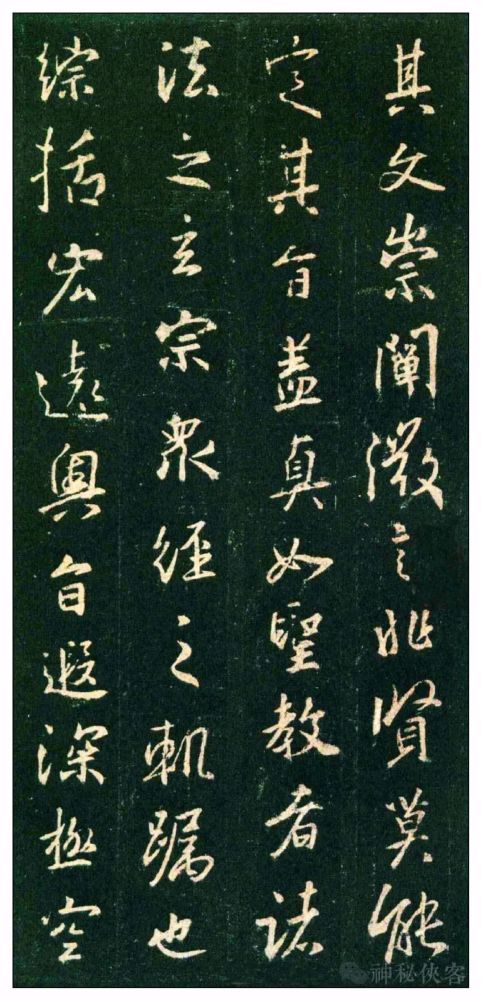 其文崇闡微言非賢莫能
定其旨盖真如聖教者諸
法之玄宗衆經之軌躅也
綜括宏遠奧旨遐深極空
神秘俠客